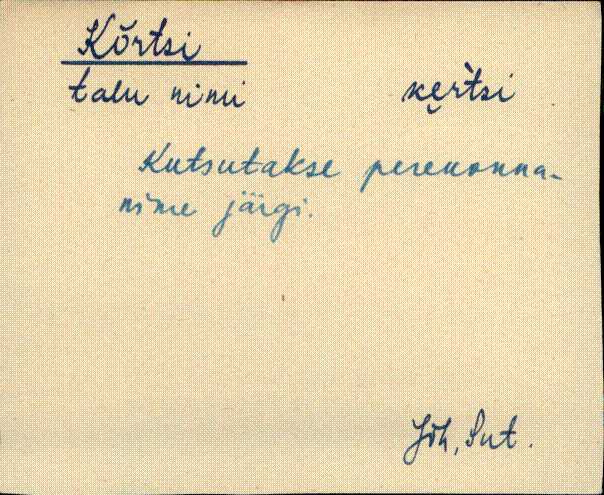 Kõrtsi
talu nimi kẹr̀tsi
Kutsutakse perekonna-
nime järgi.
Jõh, Sut.